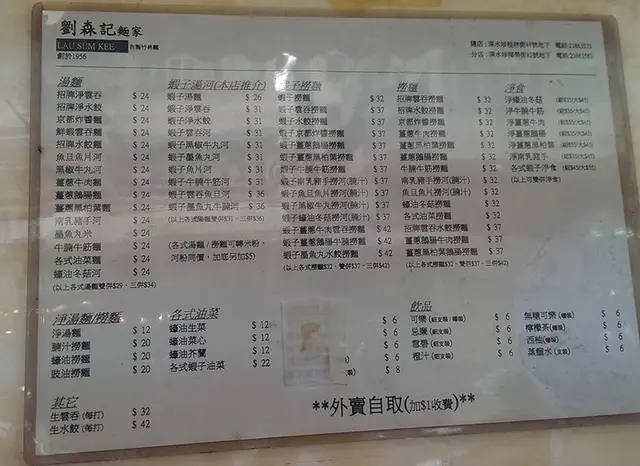 劉森記麵家
LAU SUM KEE 自製竹昇麵
創於1956
總店:深水埗桂林街48號地下 電話:23863533
分店:深水埗福榮街82號地下 電話:23863583
湯麵
招牌淨雲吞 $ 24
招牌淨水餃 $ 24
京都炸醬麵 $ 24
鮮蝦雲吞麵 $ 24
魚旦魚片河 $ 24
黑椒牛丸河 $ 24
薑蔥牛肉麵 $ 24
薑蔥鵝腸麵 $ 24
薑蔥黑柏葉麵 $ 24
南乳豬手河 $ 24
墨魚丸米 $ 24
牛腩牛筋麵 $ 24
各式油菜麵 $ 24
蠔油冬菇河 $ 24
(以上各式湯麵雙併$29、三併$34)
蝦子湯河(本店推介)
蝦子湯麵 $ 26
蝦子淨雲吞 $ 31
蝦子淨水餃 $ 31
蝦子雲吞河 $ 31
蝦子黑椒牛丸河 $ 31
蝦子墨魚丸河 $ 31
蝦子魚旦河 $ 31
蝦子牛腩牛筋河 $ 31
蝦子雲吞魚旦河 $ 36
蝦子墨魚丸牛腩河 $ 36
(以上各式湯麵雙併$31、三併$36)
(各式湯麵/撈麵可轉米粉、
河粉同價,加底另加$5)
蝦子撈麵
蝦子撈麵 $ 32
蝦子雲吞撈麵 $ 37
蝦子水餃撈麵 $ 37
蝦子京都炸醬撈麵 $ 37
蝦子薑蔥鵝腸撈麵 $ 37
蝦子薑蔥黑柏葉撈麵 $ 37
蝦子薑蔥牛肉撈麵 $ 37
蝦子牛腩牛筋撈麵 $ 37
蝦子南乳豬手撈河(腩汁) $ 37
蝦子魚旦魚片撈河(腩汁) $ 37
蝦子黑椒牛丸撈河(腩汁) $ 37
蝦子蠔油冬菇撈麵 $ 37
蝦子薑蔥牛肉雲吞撈麵 $ 42
蝦子薑蔥鵝腸牛腩撈麵 $ 42
蝦子墨魚丸水餃撈麵 $ 42
(以上各式撈麵$32、雙併$37、三併$42)
撈麵
招牌雲吞撈麵 $ 32
招牌水餃撈麵 $ 32
京都炸醬撈麵 $ 32
薑蔥牛肉撈麵 $ 32
薑蔥鵝腸撈麵 $ 32
薑蔥黑柏葉撈麵 $ 32
牛腩牛筋撈麵 $ 32
南乳豬手撈河(腩汁) $ 32
魚旦魚片撈河(腩汁) $ 32
黑椒牛丸撈河(腩汁) $ 32
蠔油冬菇撈麵 $ 32
各式油菜撈麵 $ 32
招牌雲吞水餃撈麵 $ 37
薑蔥牛肉牛腩撈麵 $ 37
薑蔥鵝腸牛腩撈麵 $ 37
薑蔥黑柏葉鵝腸撈麵 $ 37
(以上各式撈麵$32、雙併$37、三併$42)
淨食
淨蠔油冬菇 (細$35大$45)
淨牛腩牛筋 (細$35大$45)
淨薑蔥牛肉 (細$35大$45)
淨薑蔥鵝腸 (細$35大$45)
淨薑蔥黑柏葉 (細$35大$45)
淨南乳豬手 (細$35大$45)
各式蝦子淨食 (細$45大$55)
(以上可雙併淨食)
淨湯麵/撈麵
淨湯麵 $ 12
腩汁撈麵 $ 20
蠔油撈麵 $ 20
豉油撈麵 $ 20
各式油菜
蠔油生菜 $ 12
蠔油菜心 $ 12
蠔油芥蘭 $ 12
各式蝦子油菜 $ 22
$ 6
$ 6
$ 6
$ 6
$ 8
飲品
可樂(鋁支裝) $ 6
忌廉(鋁支裝) $ 6
雪碧(鋁支裝) $ 6
橙汁(鋁支裝) $ 6
無糖可樂(罐裝) $ 6
檸檬茶(罐裝) $ 6
西柚(罐裝) $ 6
蒸餾水(支裝) $ 6
其它
生雲吞(每打) $ 32
生水餃(每打) $ 42
**外賣自取(加$1收費)**